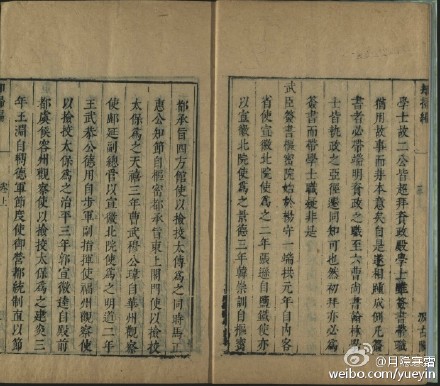 學士故二公皆超拜資政殿學士雖簽書職
猶用故事而非本意矣自是遂相踵成例凡簽
書者必帶端明資政之職至六曹尚書翰林學
士皆執政之亞徑遷同知可也然初拜亦必為
簽書而帶學士職非是
武臣簽書樞密院始於楊守一端拱元年自內客
省使宣徽北院使為之二年張遜自鹽鐵使亦
以宣徽北院使為之景德三年韓崇訓自樞密
都承旨四方館使以檢挍太傅為之同時馬正
惠公知節自樞密都承旨東上閤門使以檢挍
太保為之天禧三年曹武穆公瑋自華州觀察
使鄜延副總管以宣徽北院使為之明道二年
王武恭公德用自步軍副指揮使福州觀察使
以檢挍太保為之治平三年郭宣徽逵自殿前
都虞侯容州觀察使以檢挍太保為之建炎三
年王淵自德軍節度使御營都統制直以節
卷上
@月隐寒霜
weibo.com/yueyin